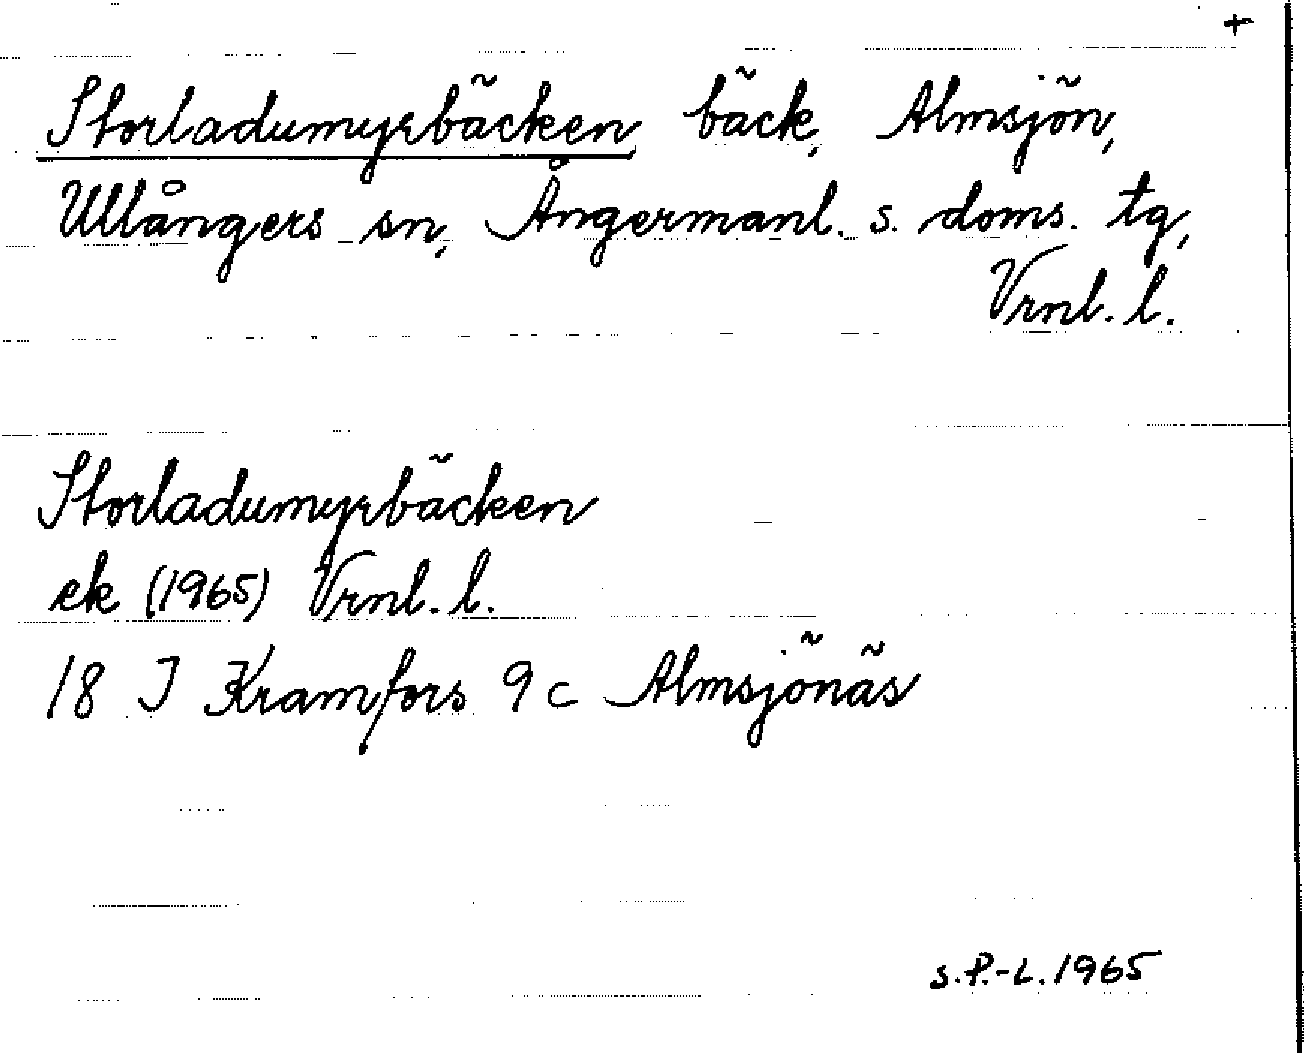 +
Storladumyrbäcken, bäck, Almsjön,
Ullångers sn, Ångermanl. s. doms. tg,
Vrnl. l.
Storladumyrbäcken
ek (1965) Vrnl. l.
18 J Kramfors 9 c Almsjönäs
s.P.-L. 1965